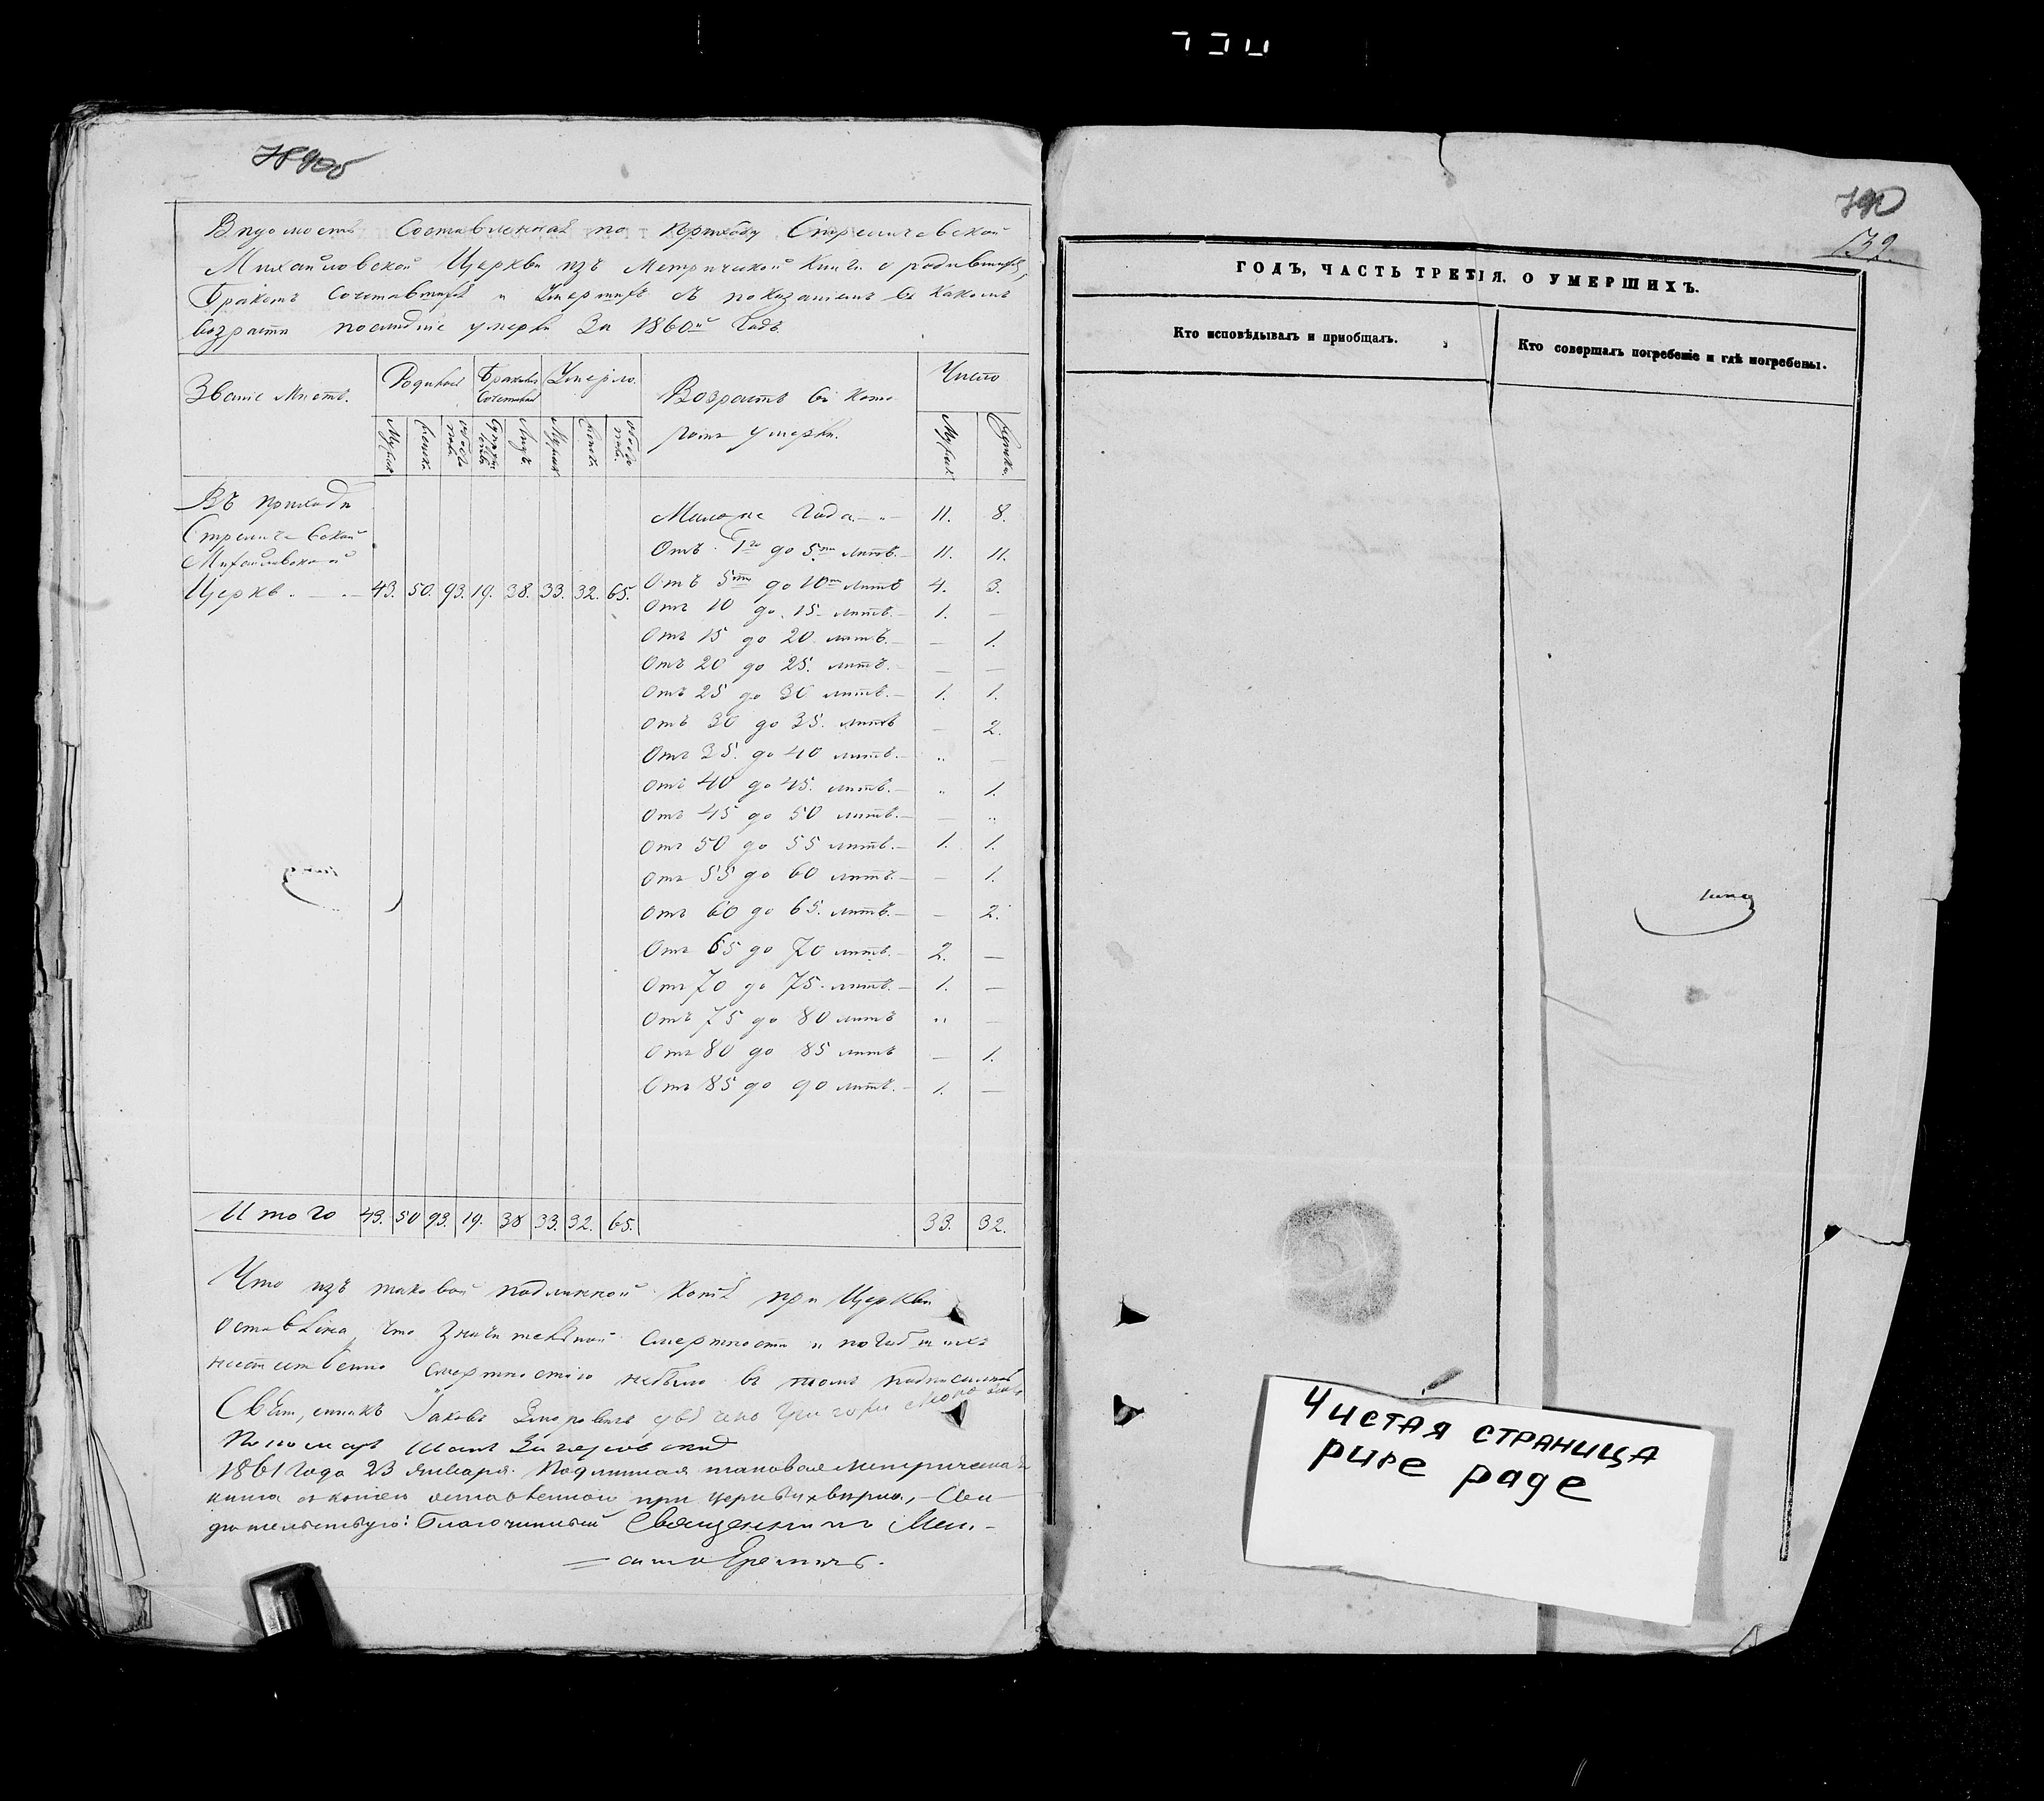 Ведомость Составленная по приходу Стреличевской
Михайловской Церкви изъ Метрической Книги о родившихся,
Бракомъ Сочетавшихся и Умершихъ съ показаніемъ въ какомъ
возрасте последніе умерли За 1860й Годъ
Званіе Местъ. Родилось Браковъ Сочетаній Умерло. Возрастъ въ кото- Число
ромъ умерли.
Мужск. Женск. обоего пола Лицъ Мужск. Женск. обоего пола. Мужск. Женск.
Въ приходе
Стреличевской
Михайловской
Церкви. 43. 50. 93. 19. 38. 33. 32. 65.
Менее Года 11. 8.
Отъ 1го до 5ти летъ. 11. 11.
Отъ 5ти до 10ти летъ 4. 3.
Отъ 10 до 15 летъ. 1. —
Отъ 15 до 20 летъ. — 1.
Отъ 20 до 25. летъ. — —
Отъ 25 до 30 летъ. 1. 1.
Отъ 30 до 35. летъ — 2.
Отъ 35. до 40 летъ. „ —
Отъ 40 до 45. летъ. „ 1.
Отъ 45 до 50 летъ. — „
Отъ 50 до 55 летъ. 1. 1.
Отъ 55 до 60 летъ. — 1.
Отъ 60 до 65. летъ. — 2.
Отъ 65 до 70 летъ. 2. —
Отъ 70 до 75. летъ. 1. —
Отъ 75 до 80 летъ „ —
Отъ 80 до 85 летъ — 1.
Отъ 85 до 90 летъ. 1. —
Итого 43. 50 93. 19. 38 33. 32. 65. 33. 32.
Что изъ таковой подлинной Копія при Церкви
оставлена, что Значительной Смертности и погибшихъ
смертностію небыло въ томъ
Іаковъ
Пономарь
1861 Года 23 Января. Подлинная таковая Метрическая
книга съ копіею оставленною при церкви верна, — Сви-
детельствую: Благочинный Священникъ
132.
ГОДЪ, ЧАСТЬ ТРЕТІЯ. О УМЕРШИХЪ.
Кто исповѣдывалъ и пріобщалъ.
Кто совершалъ погребеніе и гдѣ погребены.
Чистая страница
pure page